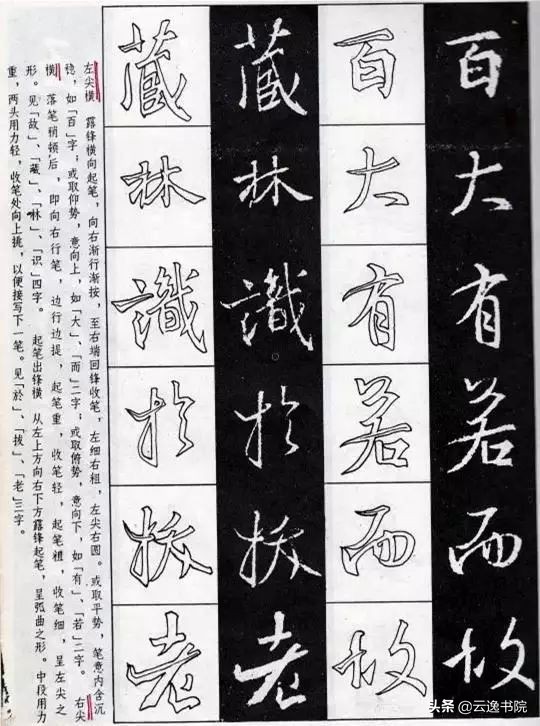 百
大
有
若
而
故
百
大
有
若
而
故
藏
林
識
於
拔
老
藏
林
識
於
拔
老
左尖横 露锋横向起笔，向右渐行渐按，至右端回锋收笔，左细右粗，左尖右圆。或取平势，笔意内含沉
稳，如「百」字；或取仰势，意向上，如「大」、「而」二字；或取俯势，意向下，如「有」、「若」二字。 右尖
横 落笔稍顿后，即向右行笔，边行边提，起笔重，收笔轻，起笔粗，收笔细，呈左尖之
形。见「故」、「藏」、「林」、「识」四字。 起笔出锋横 从左上方向右下方露锋起笔，呈弧曲之形。中段用力
重，两头用力轻，收笔处向上挑，以便接写下一笔。见「於」、「拔」、「老」三字。
头条 @云逸书院